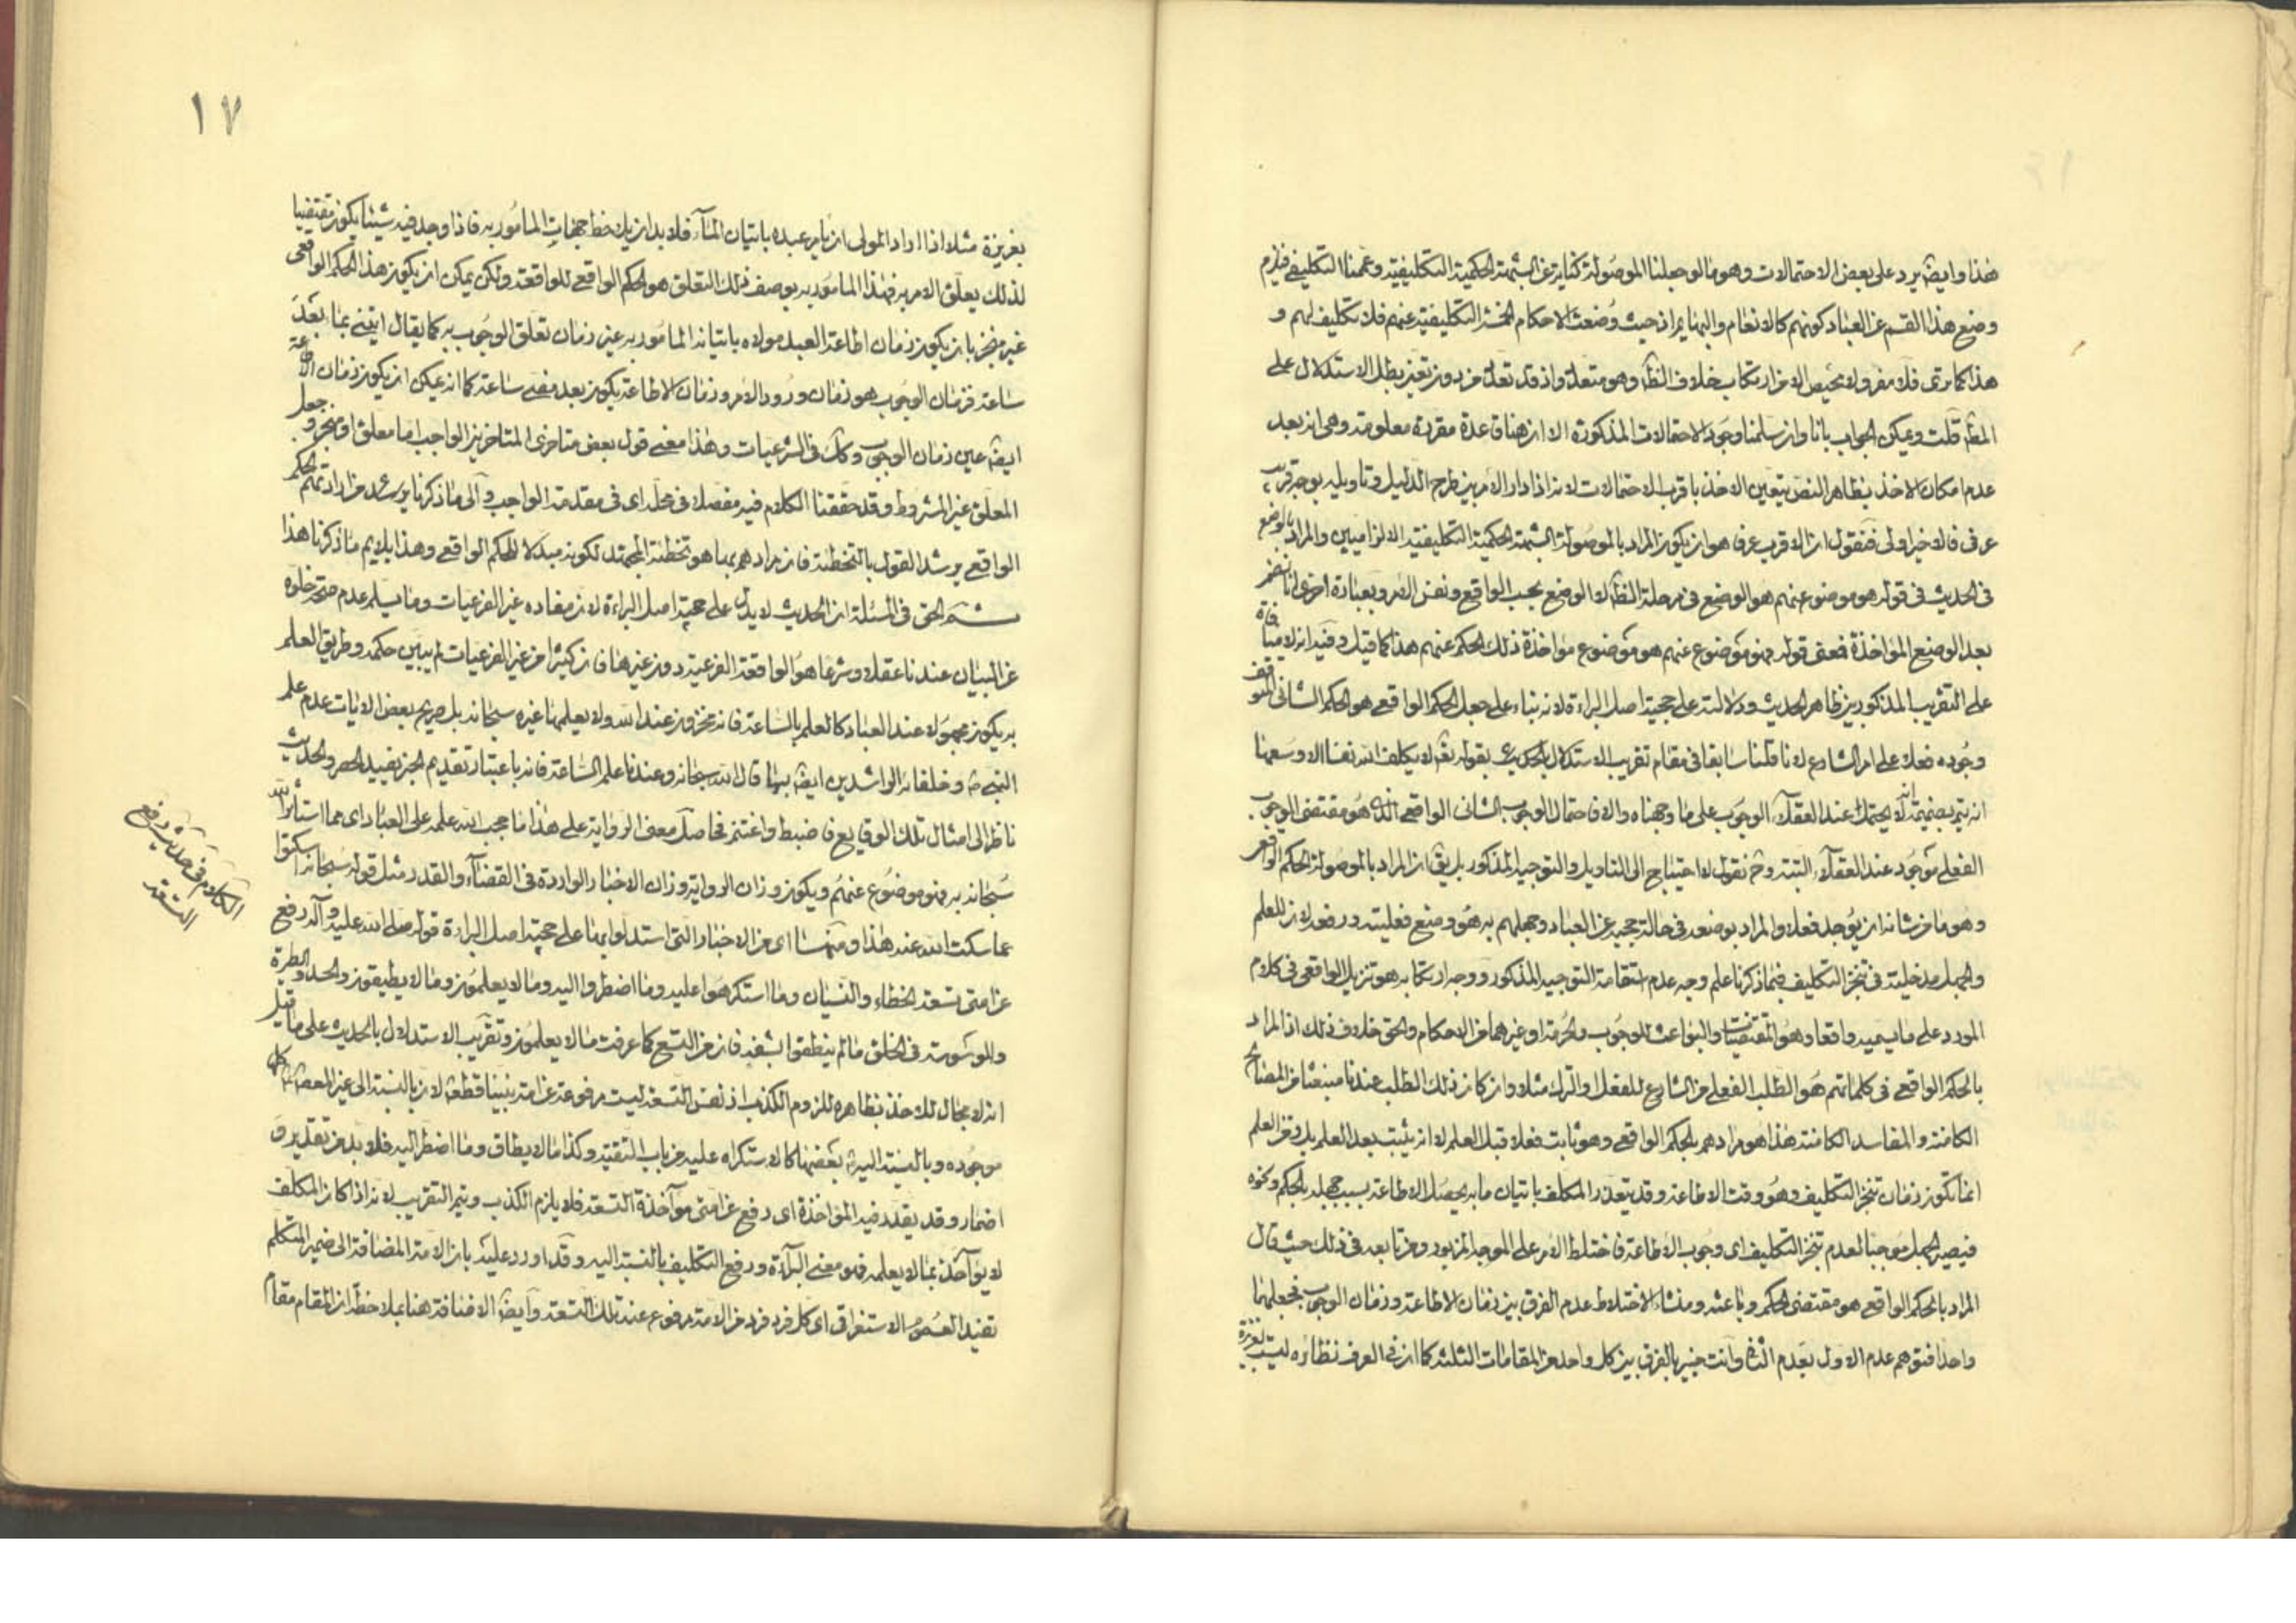 هذا وايضا يرد على بعض الاحتمالات وهو ما لو جعلنا الموصولة كناية عن الشبهة الحكمية التكليفية وعممنا التكليف فيلزم
وضع هذا القسم عن العباد كونهم كالانعام والبهايم اذ حيث وضعت الاحكام الخمسة التكليفية عنهم فلا تكليف لهم و
هذا كما ترى فلا مفر ولا محيص الا من ارتكاب خلاف الظ وهو متعدد واذ قد تعدد من دون تعين بطل الاستدلال على
المط قلت ويمكن الجواب بانا وان سلمنا وجود الاحتمالات المذكورة الا ان هنا قاعدة مقررة معلومة وهي انه بعد
عدم امكان الاخذ بظاهر النص يتعين الاخذ باقرب الاحتمالات لانه اذا دار الامر بين طرح الدليل وتاويله بوجه قريب
عرفي فالاخير اولى فنقول ان الاقرب عرفا هو ان يكون المراد بالموصولة الشبهة الحكمية التكليفية الالزاميين والمراد بالوضع
في الحديث في قوله هو موضوع عنهم هو الوضع في مرحلة الظ لا الوضع بحسب الواقع ونفس الامر وبعبارة اخرى انا نضمر
بعد الوضع المؤاخذة فمعنى قوله فهو موضوع عنهم هو موضوع مؤاخذة ذلك الحكم عنهم هذا كما قيل وفيه انه لا منافاة
على التقريب المذكور بين ظاهر الحديث ودلالته على حجية اصل البراءة لانه بناء على جعل الحكم الواقعي هو الحكم الشاني المتوقف
وجوده فعلا على امر الشارع لانا قلنا سابقا في مقام تقريب الاستدلال بالحديث بقوله تع لا يكلف الله نفسا الا وسعها
انه يتم بضميمة انه لا يحتمل عند العقلاء الوجوب على ما وجهناه والا فاحتمال الوجوب الشاني الواقعي الذي هو مقتضى الوجوب
الفعلي موجود عند العقلاء البتة وح نقول لا احتياج الى التاويل والتوجيه المذكور بل يق ان المراد بالموصولة الحكم الواقعي
وهو ما من شانه ان يوجد فعلا والمراد بوضعه في حالة حجبه عن العباد وجهلهم به هو وضع فعليته ورفعها لان للعلم
والجهل مدخلية في تنجز التكليف فبما ذكرنا علم وجه عدم استقامة التوجيه المذكور ووجه ارتكابه هو تنزيل الواقعي في كلام
المورد على ما يسميه واقعا وهو المقتضيات والبواعث للوجوب والحرمة او غيرهما من الاحكام والحق خلاف ذلك اذ المراد
بالحكم الواقعي في كلماتهم هو الطلب الفعلي من الشارع للفعل او الترك مثلا وان كان ذلك الطلب عندنا منبعثا من المصالح
الكامنة والمفاسد الكامنة هذا هو مرادهم بالحكم الواقعي وهو ثابت فعلا قبل العلم لا انه يثبت بعد العلم بل وقت العلم
انما تكون زمان تنجز التكليف وهو وقت الاطاعة وقد يتعذر المكلف باتيان ما به يحصل الاطاعة بسبب جهله بالحكم ونحوه
فيصير الجهل موجبا لعدم تنجز التكليف اى وجوب الاطاعة فاختلط الامر على الموجه المزبور ومن تابعه في ذلك حيث قال
المراد بالحكم الواقعي هو مقتضى الحكم وباعثه ومنشاء الاختلاط عدم الفرق بين زمان الاطاعة وزمان الوجوب فجعلهما
واحدا فتوهم عدم الاول بعدم الثاني وانت خبير بالفرق بين كل واحد من المقامات الثلثة كما ان في العرف نظائره ليست بعزيزة
١٧
بعزيزة مثلا اذا اراد المولى ان يامر عبده باتيان الماء فلا بد ان يلاحظ جهات المامور به فاذا وجد فيه شيئا يكون مقتضيا
لذلك يعلق الامر به فهذا المامور به بوصف ذلك التعلق هو الحكم الواقعي للواقعة ولكن يمكن ان يكون هذا الحكم الواقعي
غير منجز بان يكون زمان اطاعة العبد مولاه باتيانه المامور به غير زمان تعلق الوجوب به كما يقال ايتني بماء بعد
ساعة فزمان الوجوب هو زمان ورود الامر وزمان الاطاعة يكون بعد مضي ساعة كما انه يمكن ان يكون زمان الاطاعة
ايضا عين زمان الوجوب وكك في الشرعيات وهذا معنى قول بعض متاخرى المتاخرين الواجب اما معلق او منجز وجعل
المعلق غير المشروط وقد حققنا الكلام فيه مفصلا في محله اى في مقدمة الواجب والى ما ذكرنا يرشد مرادهم بالحكم
الواقعي يرشد القول بالتخطئة فان مرادهم بها هو تخطئة المجتهد لكونه مبدلا للحكم الواقعي وهذا يلايم ما ذكرنا هذا
ثم الحق في المسئلة ان الحديث لا يدل على حجية اصل البراءة لان مفاده غير الفرعيات وما يسلم عدم صحة خلوه
عن البيان عندنا عقلا وشرعا هو الواقعة الفرعية دون غيرها فان كثيرا من غير الفرعيات لم يبين حكمه وطريق العلم
به يكون مجهولا عند العباد كالعلم بالساعة فانه مخزون عند الله ولا يعلمها غيره سبحانه بل صريح بعض الايات عدم علم
النبي ص وخلفائه الراشدين ايضا بها قال الله سبحانه وعنده علم الساعة فانه باعتبار تقديم الخبر يفيد الحصر والحديث
ناظر الى امثال تلك الوقايع فاضبط واغتنم فحاصل معنى الرواية على هذا ما حجب الله علمه على العباد اى مما استاثر الله
سبحانه به فهو موضوع عنهم ويكون وزان الرواية وزان الاخبار الواردة في القضاء والقدر مثل قوله سبحانه اسكتوا
عما سكت الله عنه هذا ومنها اى من الاخبار التي استدلوا بها على حجية اصل البراءة قوله صلى الله عليه وآله رفع
عن امتي تسعة الخطاء والنسيان وما استكرهوا عليه وما اضطروا اليه وما لا يعلمون وما لا يطيقون والحسد والطيرة
والوسوسة في الخلق ما لم ينطقوا بشفة فان من التسع كما عرفت ما لا يعلمون وتقريب الاستدلال بالحديث على ما قيل
انه لا مجال للاخذ بظاهره للزوم الكذب اذ نفس التسعة ليست مرفوعة عن امة نبينا قطعا لان بالنسبة الى غير المعصوم كلها
موجوده وبالنسبة اليه بعضها كالاستكراه عليه من باب التقية وكذا ما لا يطاق وما اضطر اليه فلا بد من تقدير و
اضمار وقد يقدر فيه المؤاخذة اى رفع عن امتي مؤاخذة التسعة فلا يلزم الكذب ويتم التقريب لانه اذا كان المكلف
لا يؤاخذ بما لا يعلمه فهو معنى البراءة ورفع التكليف بالنسبة اليه وقد اورد عليه بان الامة المضافة الى ضمير المتكلم
تفيد العموم الاستغراقي اى كل فرد فرد من الامة مرفوع عنه تلك التسعة وايضا الاضافة هنا بملاحظة ان المقام مقام
الكلام في حديث رفع
التسعة